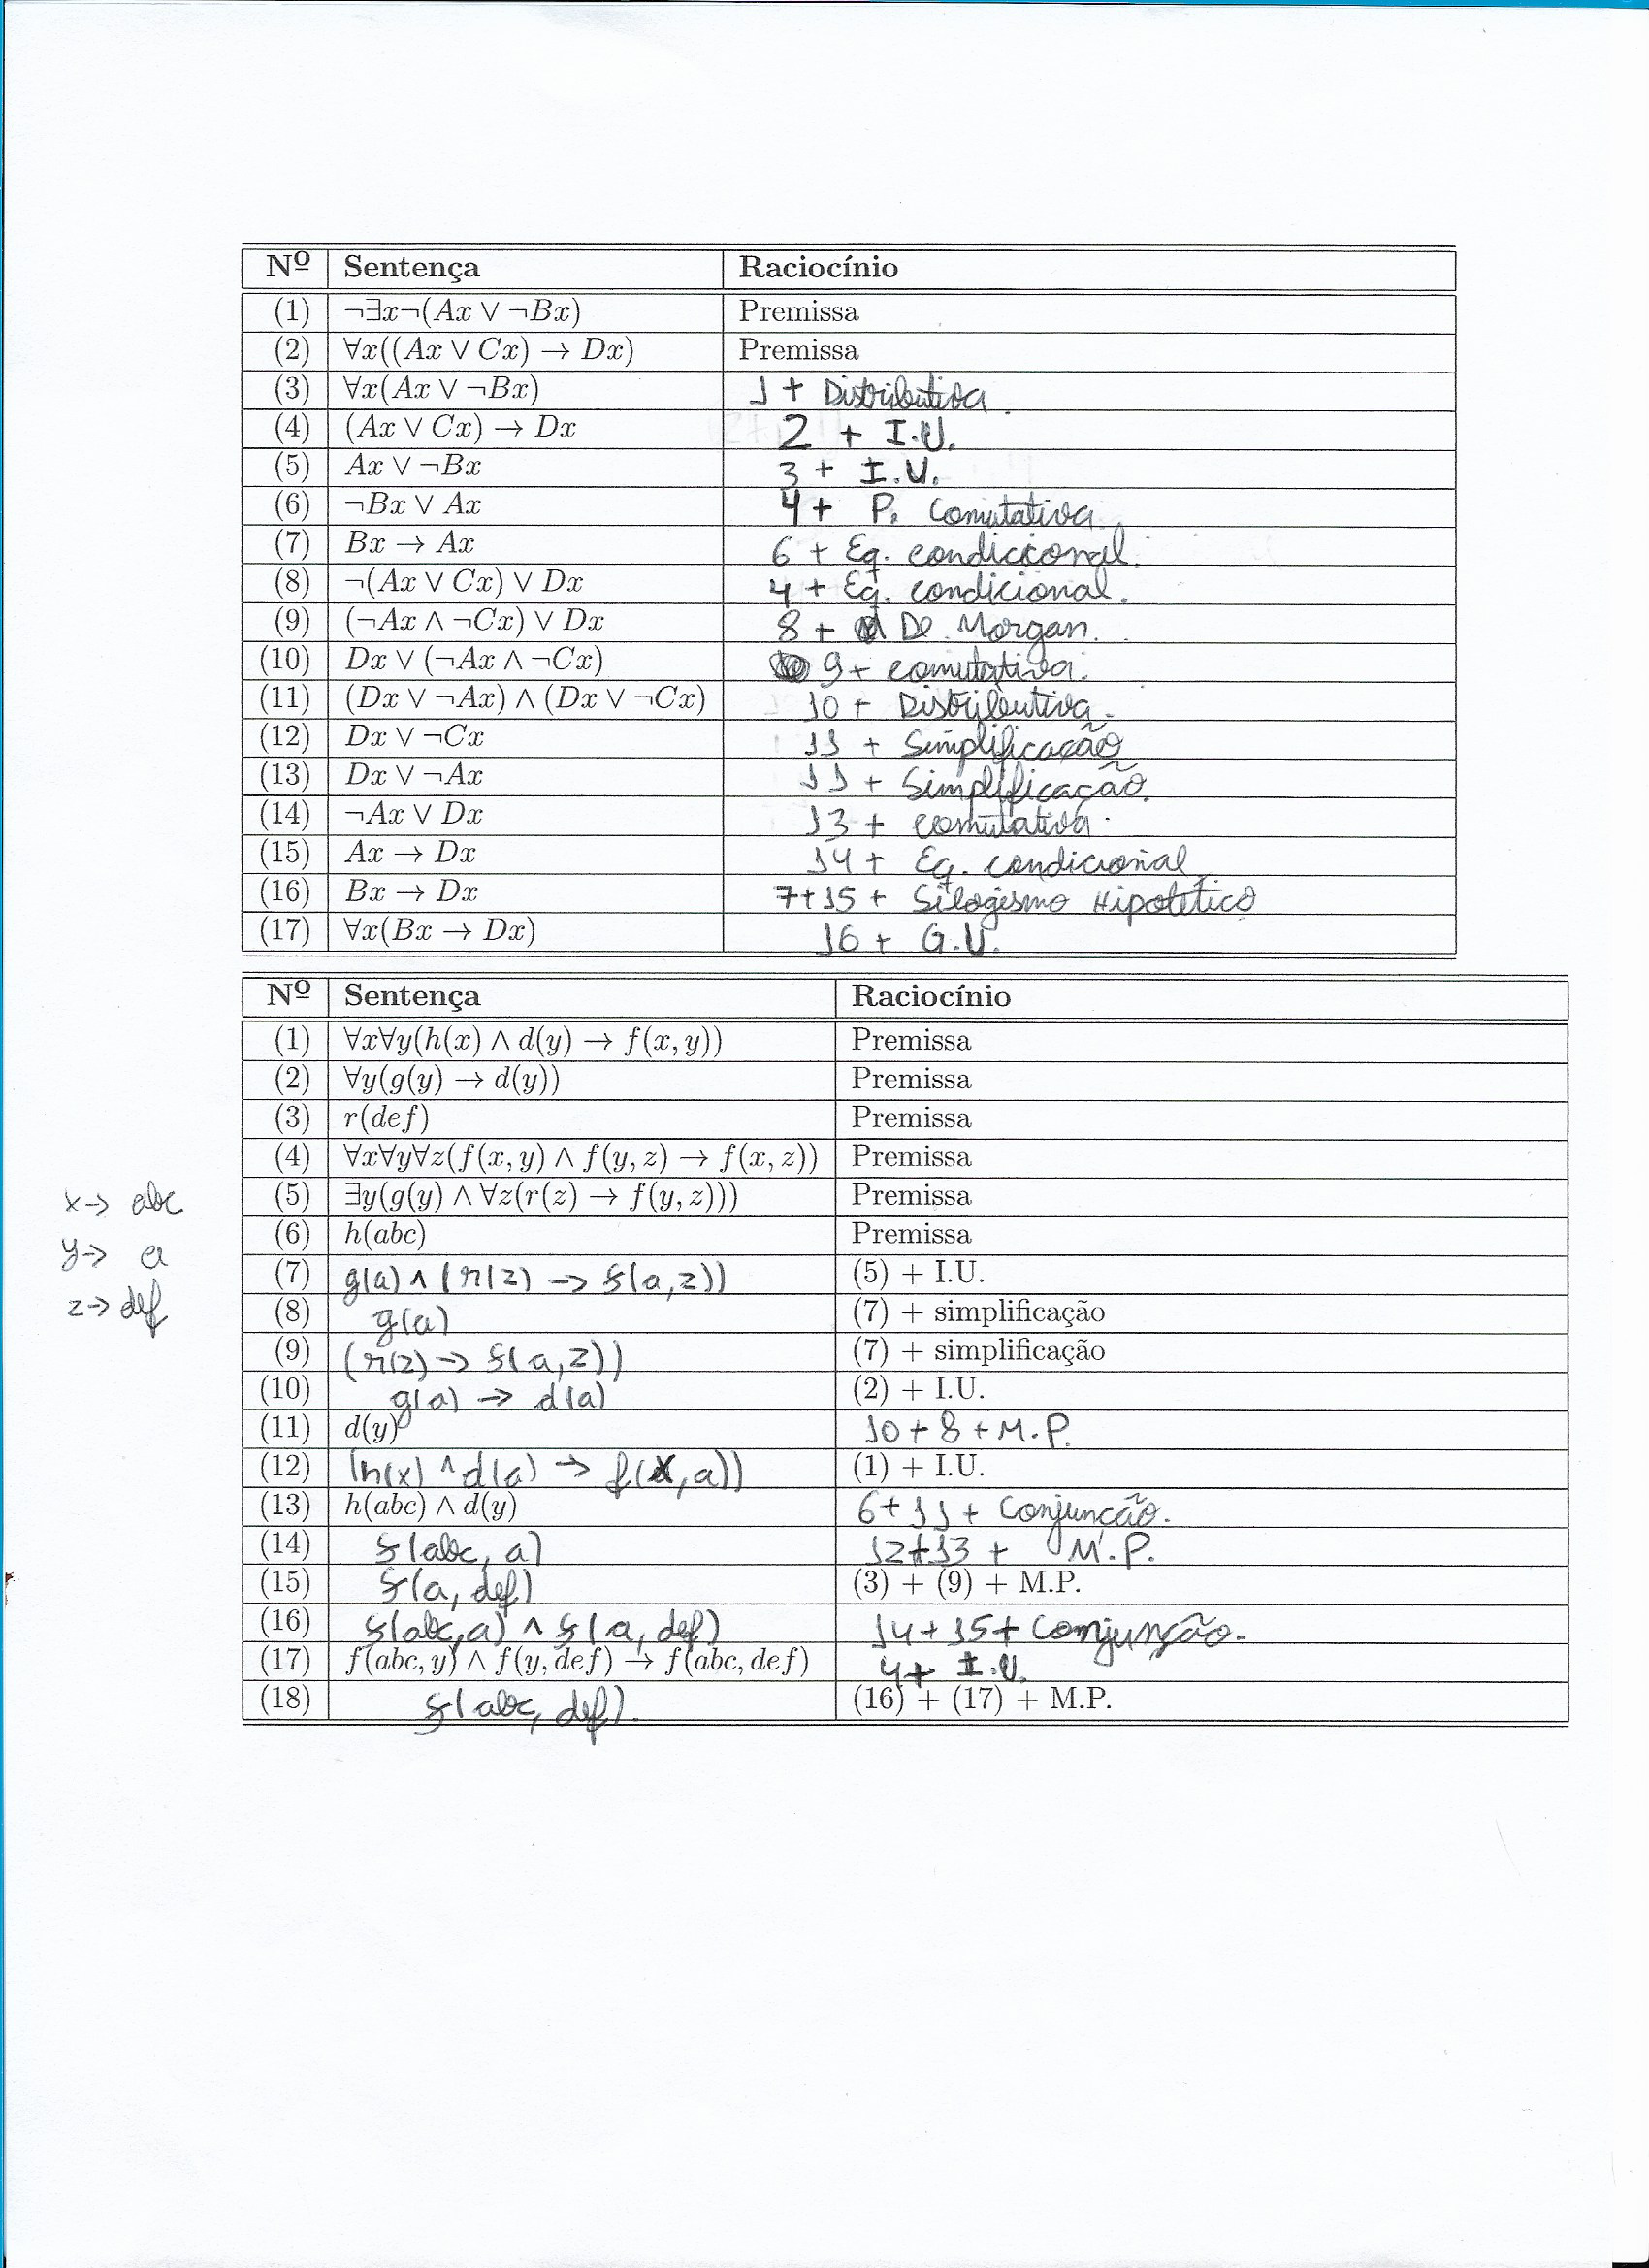 Nº Sentença Raciocínio
(1) ¬∃x¬(Ax ∨ ¬Bx) Premissa
(2) ∀x((Ax ∨ Cx) → Dx) Premissa
(3) ∀x(Ax ∨ ¬Bx) 1 + Distributiva.
(4) (Ax ∨ Cx) → Dx 2 + I.U.
(5) Ax ∨ ¬Bx 3 + I.U.
(6) ¬Bx ∨ Ax 4 + P. Comutativa.
(7) Bx → Ax 6 + Eq. condicional.
(8) ¬(Ax ∨ Cx) ∨ Dx 4 + Eq. condicional.
(9) (¬Ax ∧ ¬Cx) ∨ Dx 8 + De Morgan.
(10) Dx ∨ (¬Ax ∧ ¬Cx) 9 + comutativa.
(11) (Dx ∨ ¬Ax) ∧ (Dx ∨ ¬Cx) 10 + Distributiva.
(12) Dx ∨ ¬Cx 11 + Simplificação
(13) Dx ∨ ¬Ax 11 + Simplificação.
(14) ¬Ax ∨ Dx 13 + comutativa.
(15) Ax → Dx 14 + Eq. condicional
(16) Bx → Dx 7+15 + Silogismo Hipotético
(17) ∀x(Bx → Dx) 16 + G.U.
Nº Sentença Raciocínio
(1) ∀x∀y(h(x) ∧ d(y) → f(x, y)) Premissa
(2) ∀y(g(y) → d(y)) Premissa
(3) r(def) Premissa
(4) ∀x∀y∀z(f(x, y) ∧ f(y, z) → f(x, z)) Premissa
(5) ∃y(g(y) ∧ ∀z(r(z) → f(y, z))) Premissa
x→ abc
(6) h(abc) Premissa
y→ a
(7) g(a) ∧ (r(z) → f(a,z)) (5) + I.U.
z→ def
(8) g(a) (7) + simplificação
(9) (r(z) → f(a,z)) (7) + simplificação
(10) g(a) → d(a) (2) + I.U.
(11) d(y) 10 + 8 + M.P.
(12) (h(x) ∧ d(a) → f(x,a)) (1) + I.U.
(13) h(abc) ∧ d(y) 6+11 + Conjunção.
(14) f(abc, a) 12+13 + M.P.
(15) f(a, def) (3) + (9) + M.P.
(16) f(abc,a) ∧ f(a, def) 14+15+ Conjunção.
(17) f(abc, y) ∧ f(y, def) → f(abc, def) 4+ I.U.
(18) f(abc, def). (16) + (17) + M.P.